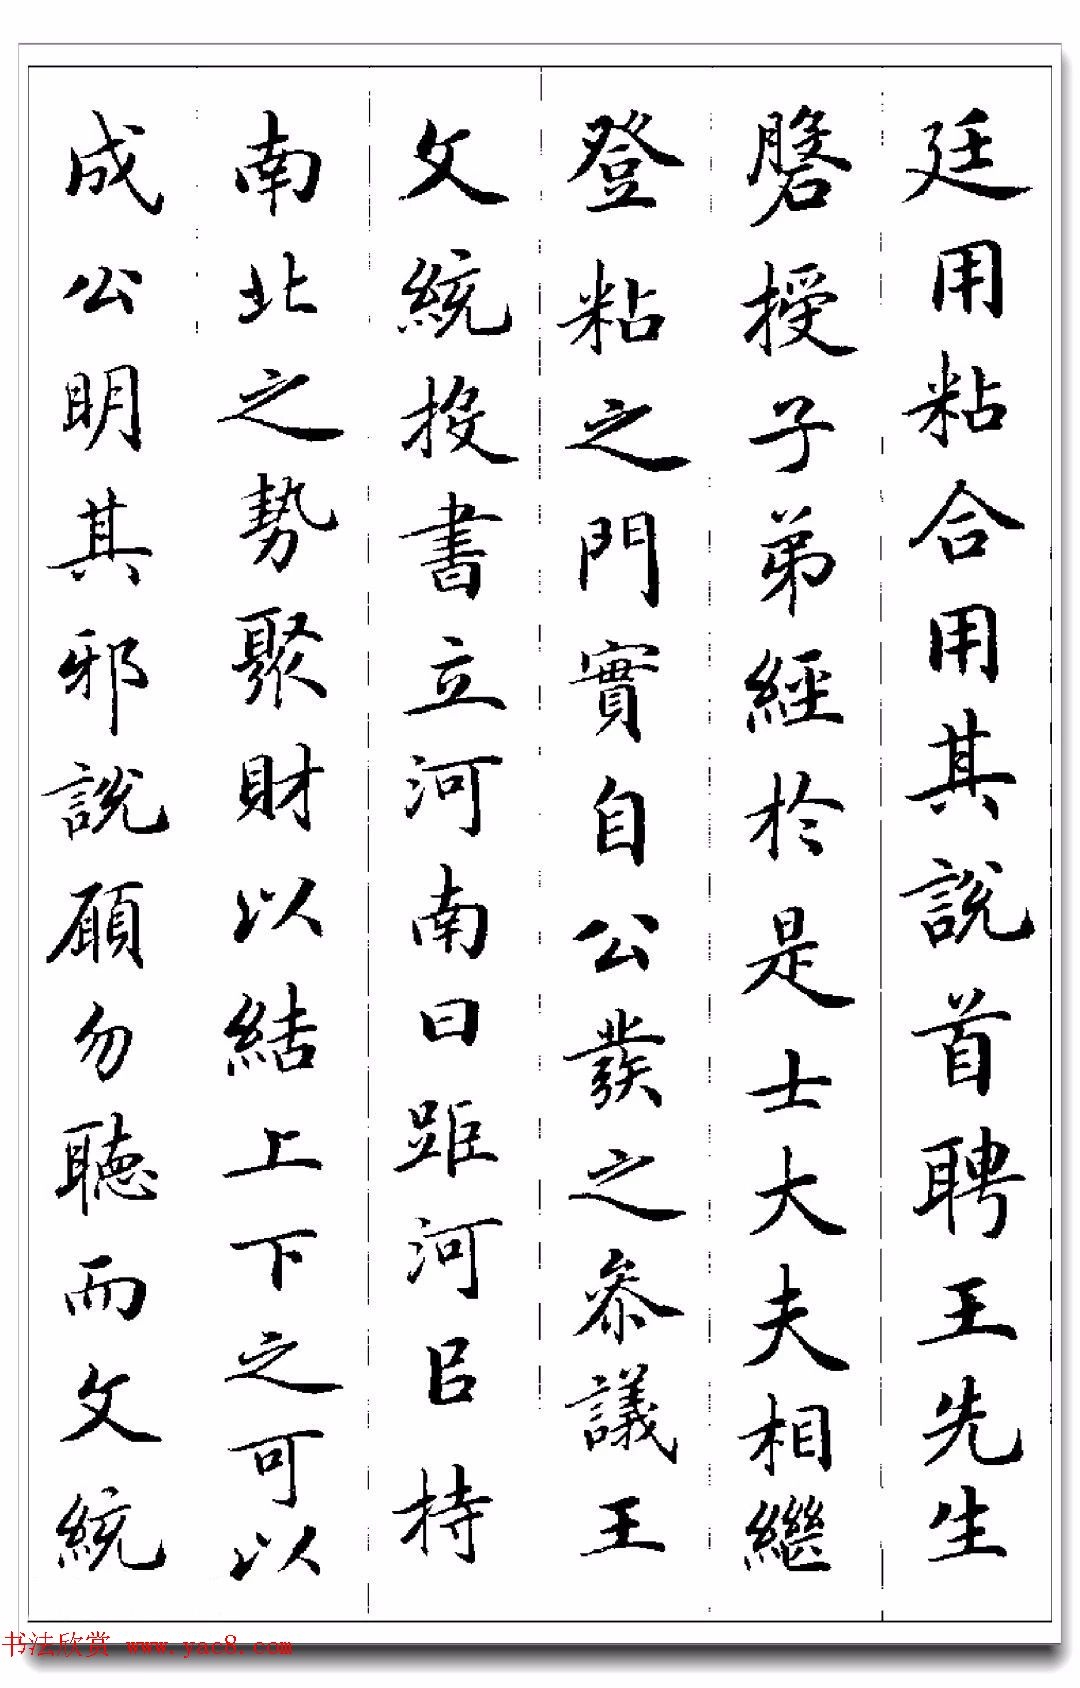 廷用粘合用其說首聘王先生
磨授子弟經於是士大夫相繼
登粘之門實自公發之叅議王
文統投書立河南曰距河㠯持
南北之勢聚財以結上下之可以
成公明其邪說願勿聽而文統
书法欣赏 www.yac8.com